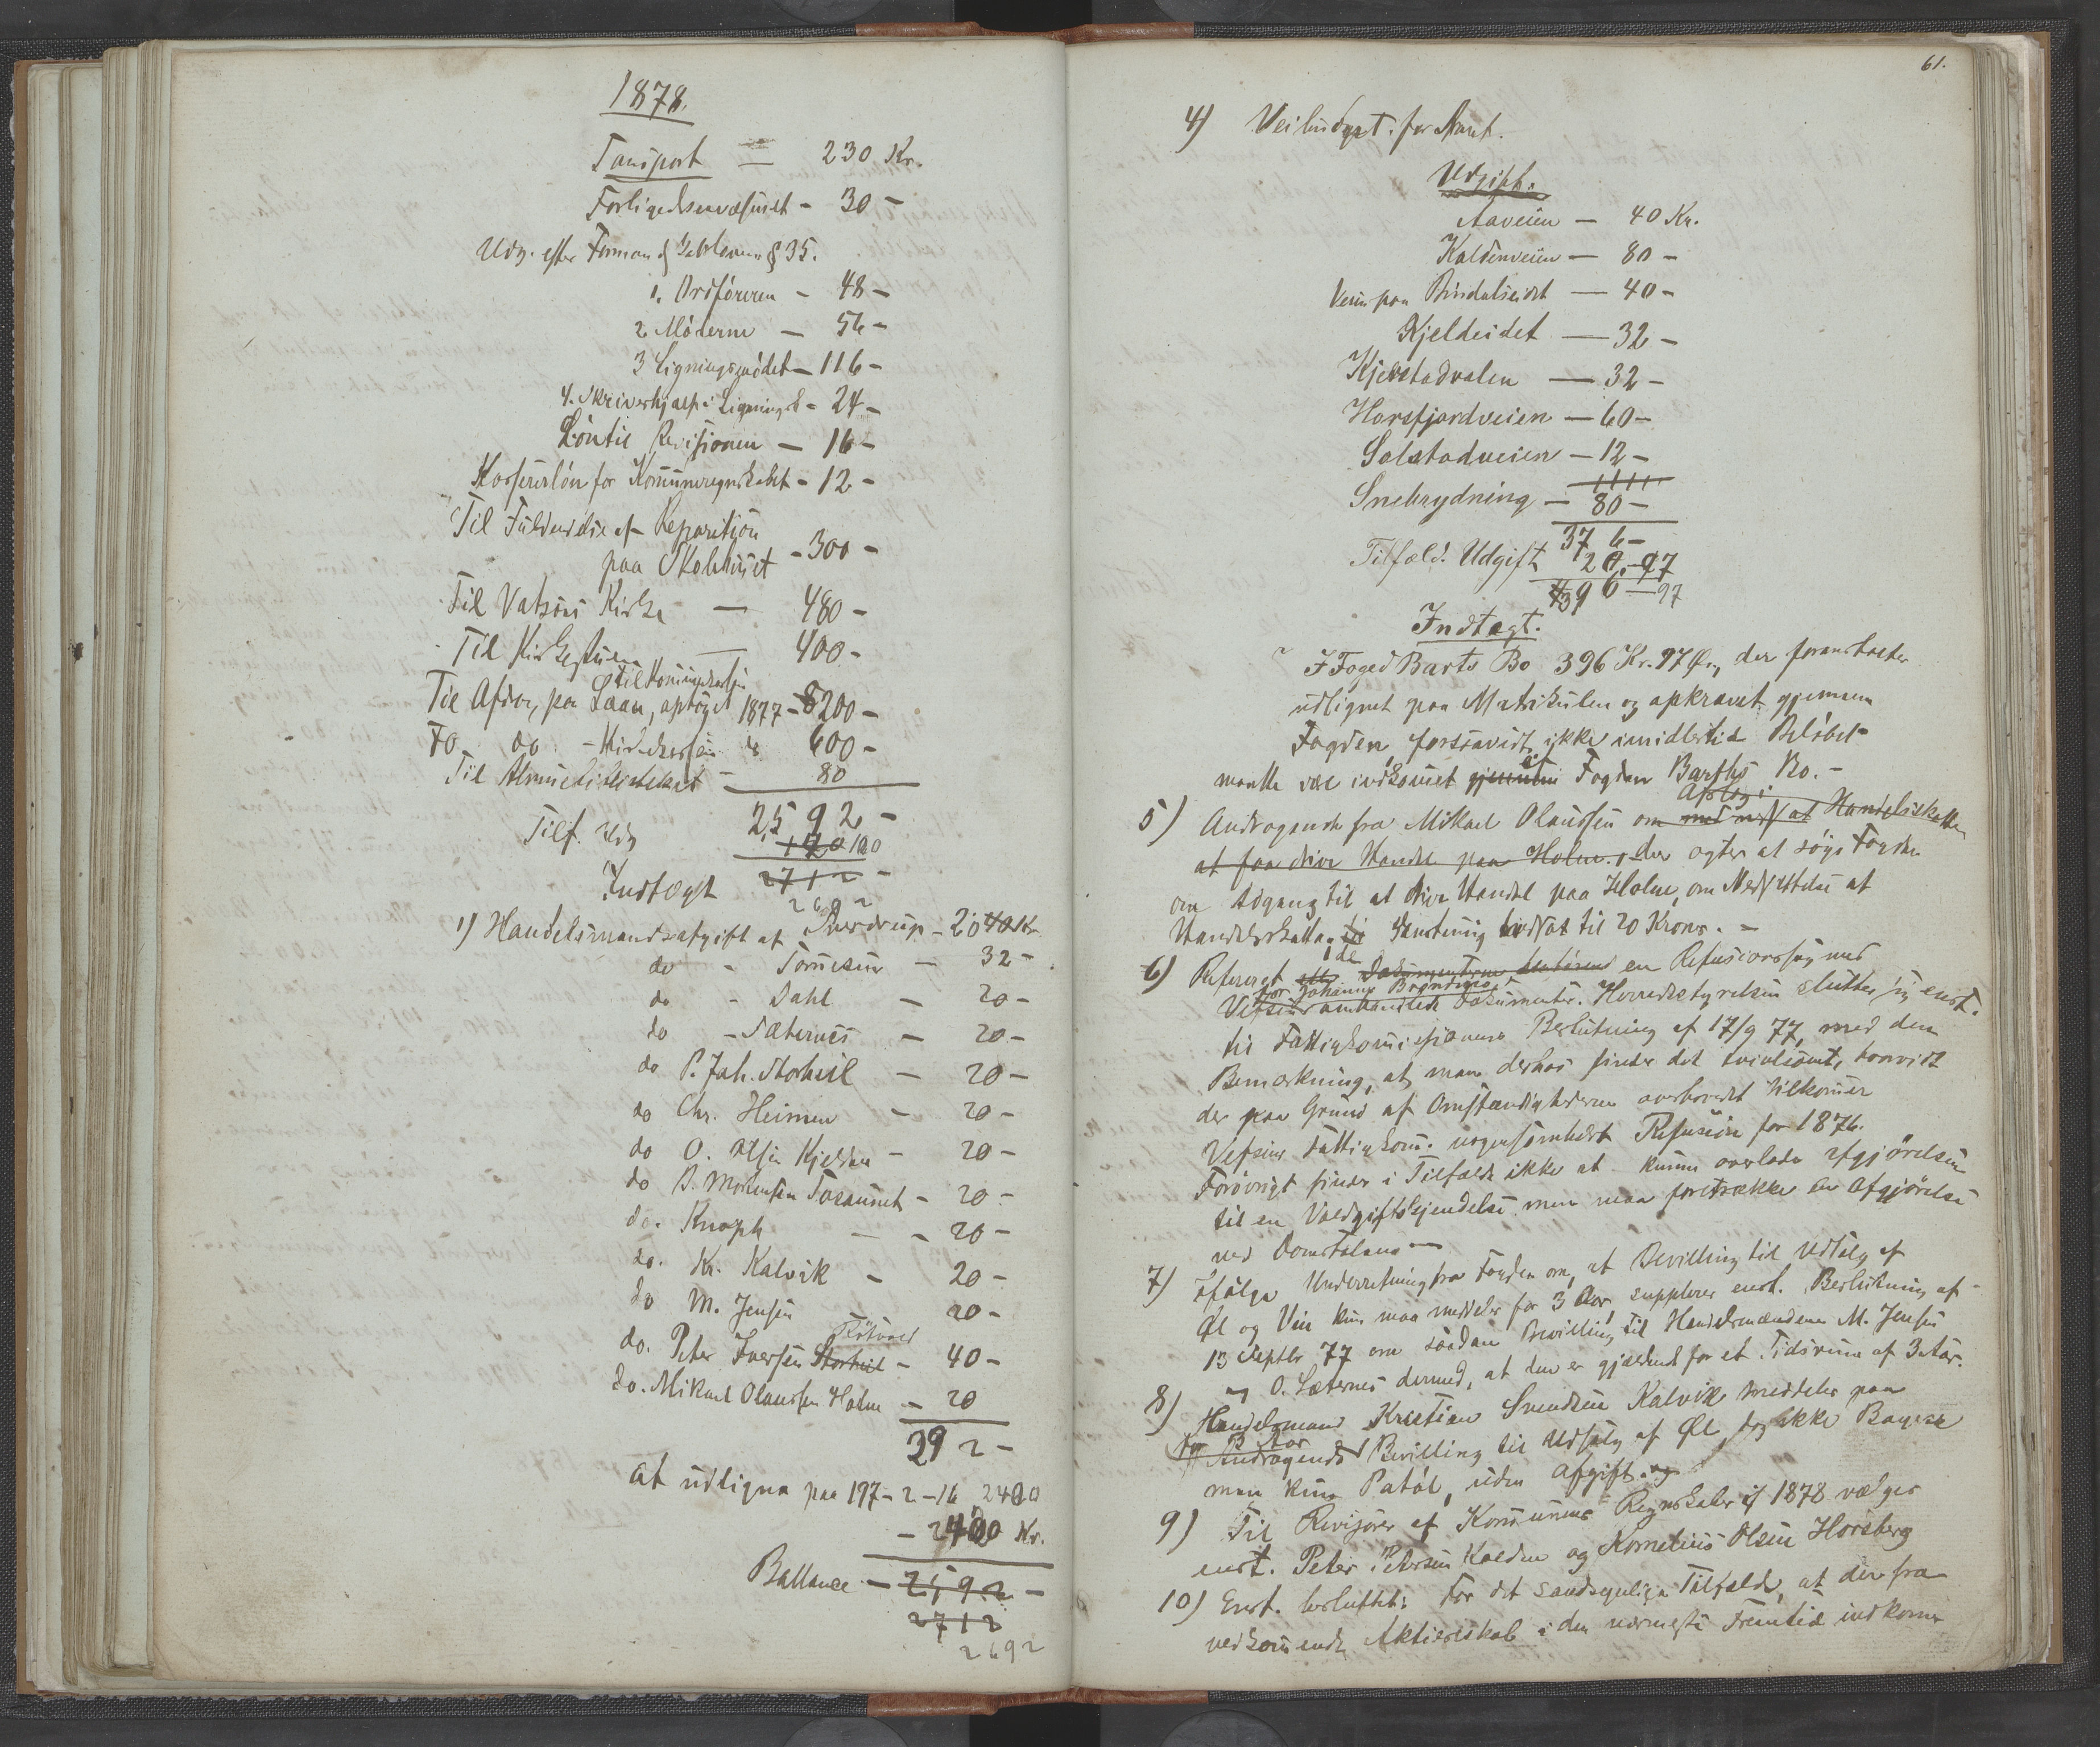 1878.
Transport — 230 Kr.
Forligelsesvæsenet - 30 -
Udg. efter Formandskabsloven § 35.
1. Ordføreren - 48 -
2 Møderne — 56 -
3 Ligningsmødet - 116 -
4. Skriverhjælp i Ligning - 24 -
Løn til Revisionen — 16 -
Kasserløn for Kommuneregnskabet - 12 -
Til Fuldendelse af Reparation
paa Skolehuset - 300 -
Til Vatsøes Kirke — 480 -
Til Kirkestuen — 400 -
til Kommunekassen
Til Afdr. paa Laan, optaget 1877 - 200 -
do do - Kirkekassen do 600 -
Til Almuebibliotheket - 80
2592 -
Tilf. Udg 120 100
2712 -
Indtægt 2692
1) Handelsmandsafgift af Sverdrup - 20 40 Kr.
do - Tomesen — 32 -
do - Dahl — 20 -
do - Sæternes — 20 -
do P. Joh. Storheil — 20 -
do Chr. Heimen — 20 -
do O. Olsen Kjelden - 20 -
do P. Mortensen Tosaunet - 20 -
do. Knoph — - 20 -
do. Kr. Kalvik - 20 -
do M. Jensen 20 -
Flötvær
do. Peter Iversen Storheil - 40 -
do. Mikael Olaussen Holm - 20
292 -
at udligne paa 197 - 2 - 16 2400
- 2400 Kr.
Ballance - 2592 -
2712
2692
61.
4) Veibudget for Aaret.
Udgift.
Aaveien — 40 Kr.
Kaldenveien — 80 -
Veien paa Bindalseidet — 40 -
Kjeldeidet — 32 -
Kjelstadvalen — 32 -
Horsfjordveien — 60 -
Solstadveien — 12 -
Snebrydning — 80 -
376 -
Tilfæld. Udgift 20,97
396 - 97
Indtægt.
I Foged Barts Bo 396 Kr. 97 Ør., der foranstaltes
udlignet paa Matrikulen og opkrævet gjennem
Fogden, forsaavidt ikke imidlertid Beløbet
maatte være indkommet gjennem af Fogden Barths Bo. -
5) Andragende fra Mikael Olaussen om Handelsskatten
at faa drive Handel paa Holm. der agter at søge Fogden
om Adgang til at drive Handel paa Holm, om Nedsættelse af
Handelsskatten. Skatten nedsat til 20 Kroner. -
6) Refereret de Dokumenterne en Refusionssag med
for Johannes Brændmo
Vefsen omhandlede Dokumenter. Herredsstyrelsen slutter sig enst.
til Fattigkommissionens Beslutning af 17/9 77, med den
Bemærkning, at man derhos finder det tvivlsomt, hvorvidt
der paa Grund af Omstændighederne overhovedet tilkommer
Vefsens Fattigkom. nogensomhelst Refusion for 1876.
Forøvrigt finder i Tilfælde ikke at kunne overlade afgjørelsen
til en Voldgiftskjendelse men maa foretrække en Afgjørelse
ved Domstolene —
7) Ifølge Underretning fra Fogden om, at Bevilling til Udsalg af
Øl og Vin kun maa meddeles for 3 Aar, suppleres enst. Beslutning af
13 Septbr 77 om saadan Bevilling til Handelsmændene M. Jensen
og O. Sæternes dermed, at den er gjældende for et Tidsrum af 3 Aar.
8) Handelsmand Kristian Svendsen Kalvik meddeles paa
for 3 Aar
Andragende Bevilling til Udsalg af Øl, dog ikke Bayersk
men kun Patøl, uden Afgift.
9) Til Revisorer af Kommunens Regnskaber if 1878 vælges
enst. Peter Petersen Kalden og Kornelius Olsen Horsberg
10) Enst. besluttet: For det sandsynlige Tilfælde, at der fra
vedkommende Aktieselskab i den nærmeste Fremtid indkommer